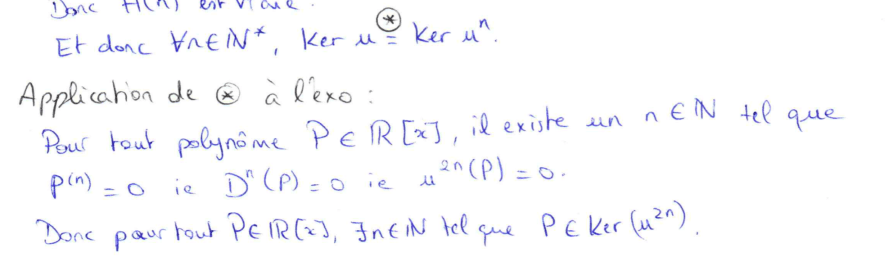 Donc H(n) est vraie.
Et donc ∀n∈ℕ*, Ker u =^⊛ Ker uⁿ.
Application de ⊛ à l'exo :
Pour tout polynôme P ∈ ℝ[x], il existe un n ∈ ℕ tel que
P⁽ⁿ⁾ = 0 ie Dⁿ(P) = 0 ie u²ⁿ(P) = 0.
Donc pour tout P∈ℝ[x], ∃n∈ℕ tel que P ∈ Ker(u²ⁿ).